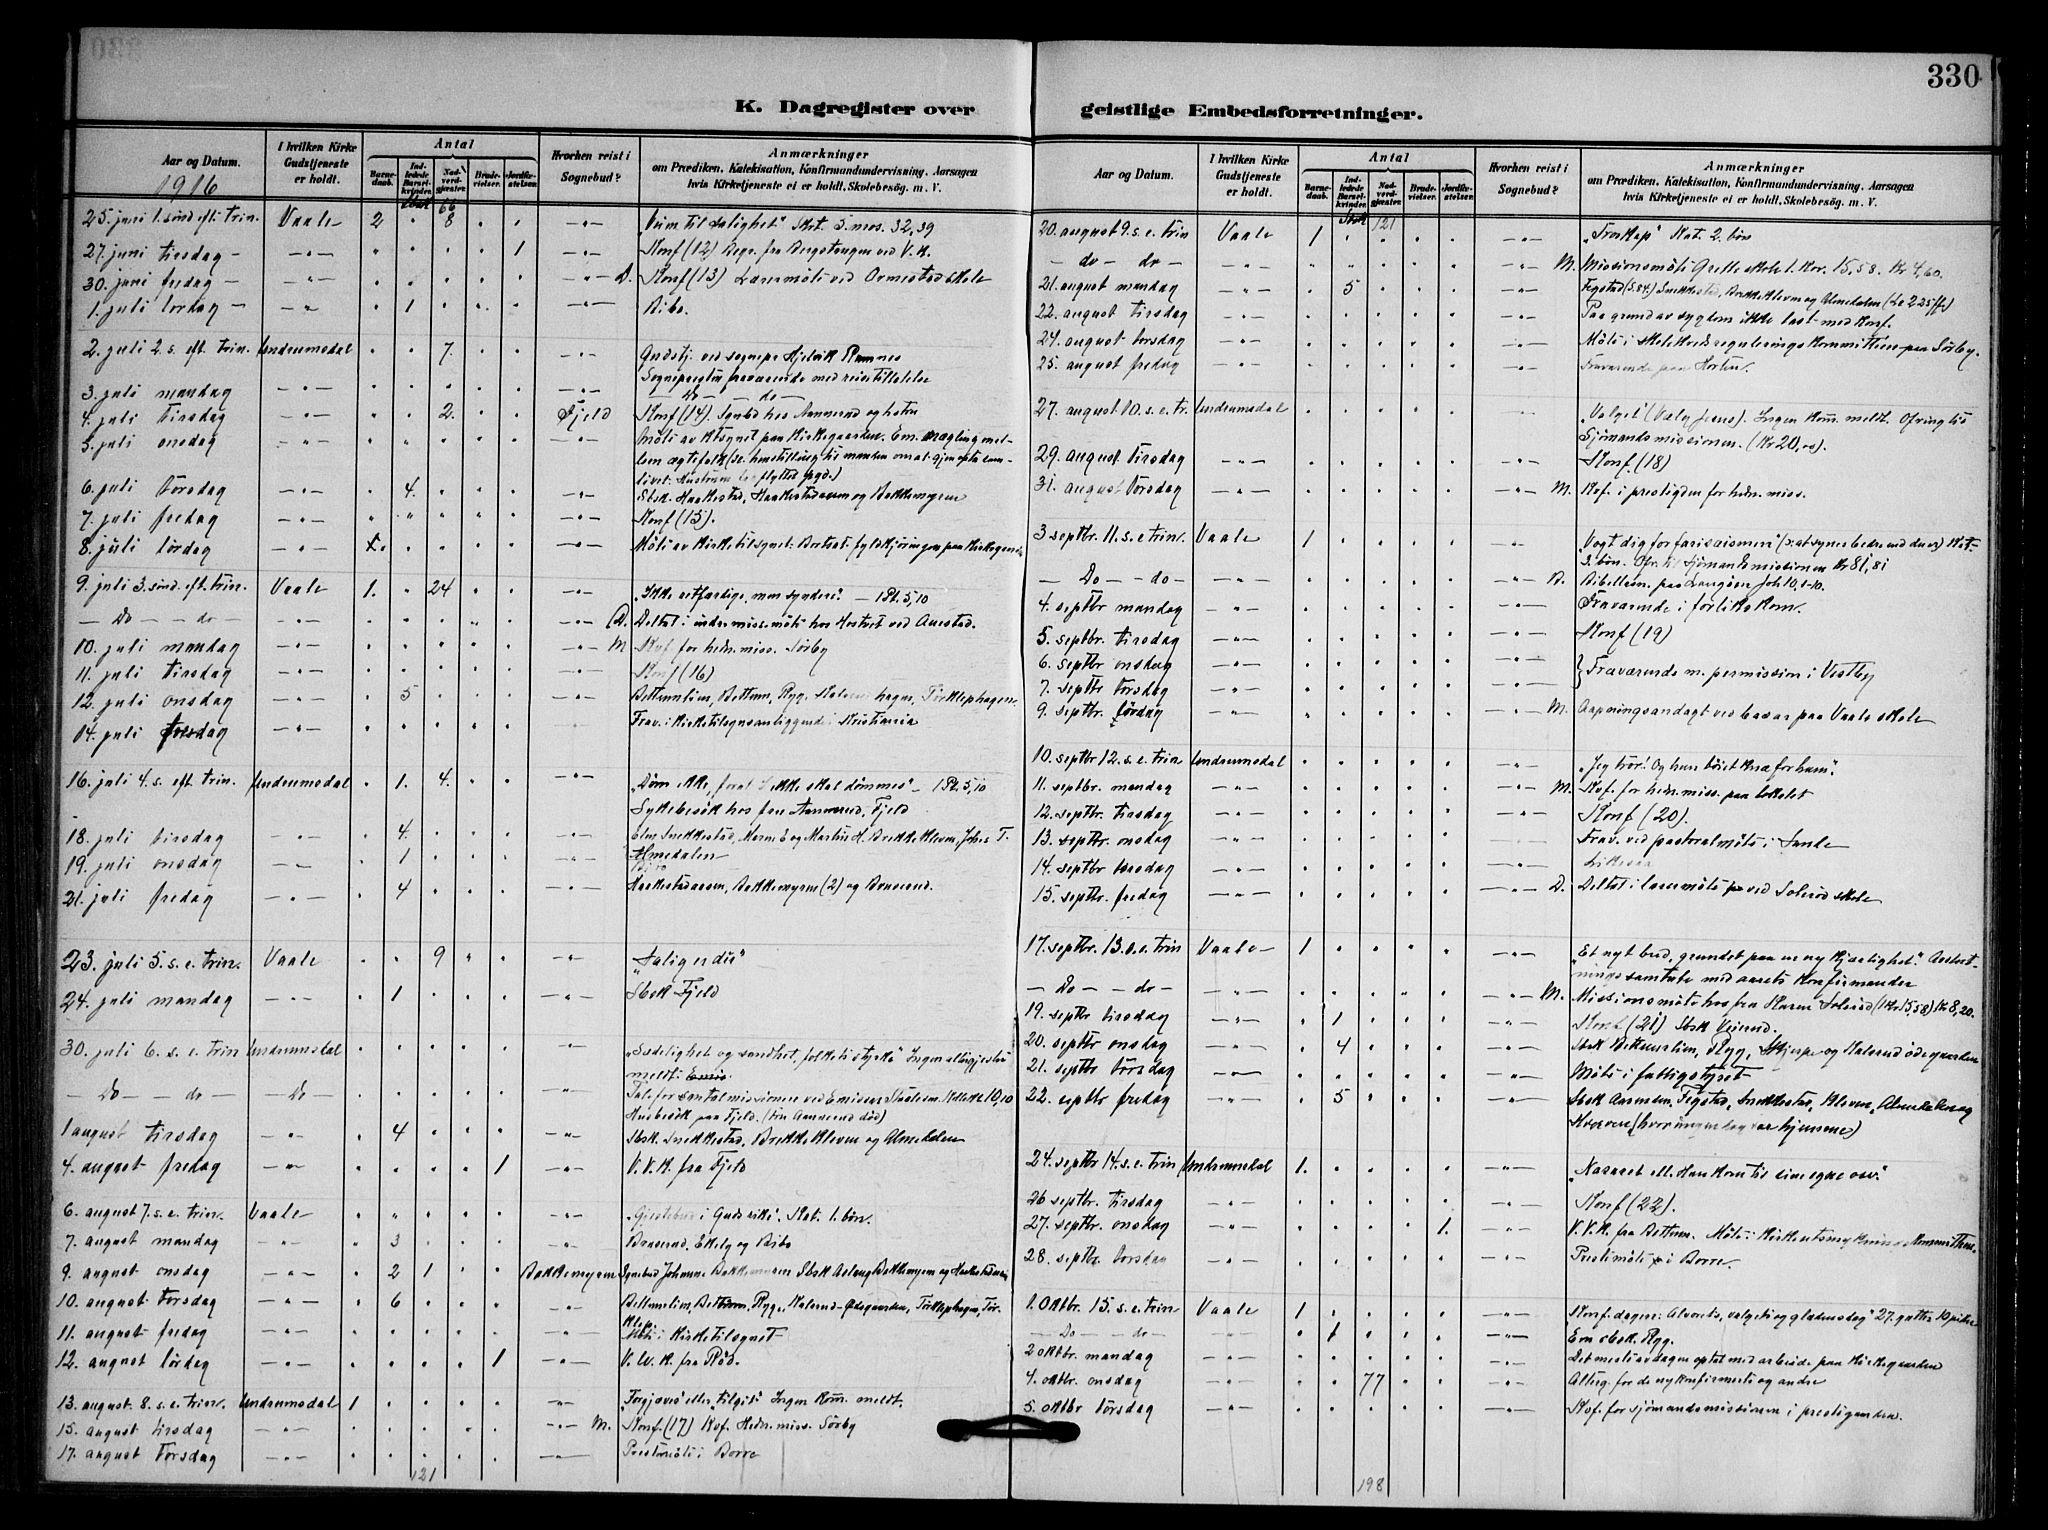 330
K. Dagregister over
Aar og Datum.
1916
I hvilken Kirke Gudstjeneste er holdt.
Antal
Barnedaab.
Indledede Barselkvinder.
Nadverdgjæster.
Brudevielser.
Jordfæstelser.
Hvorhen reist i Sognebud?
Anmærkninger
om Prædiken, Katekisation, Konfirmandundervisning, Aarsagen
hvis Kirketjeneste ei er holdt, Skolebesøg. m. V.
Sbsk 66
25. juni 1. sind eft. trin. Vaale 2 . 8 . . -"-
27. juni tirsdag - -"- . . . . 1 -"- Konf (12) Begr. fra ved V.K.
30. juni fredag - -"- . . . . . -"- D. Konf (13) Læsermöte ved Ormestad skole
1. juli lordag - -"- . 1 . . . -"- Bibo.
2. juli 2. s. eft. trin. Undrumsdal . . 7. . . -"- Gudstj. ved sognepr. Hjelvik Ramnes
Sogneprestin fraværende med reisetilladelse
3. juli mandag -"- . . . . . -"- - Do - - do -
4. juli tirsdag -"- . . 2. . . Fjeld Konf (14). Sognebud hos Aannerud og hustru
5. juli onsdag -"- . . . . . -"- Möte av kirketilsynet paa Kirkegaarden. Em. mægling mel-
lem ægtefolk
6. juli törsdag -"- . 4. . . . -"- Sbsk. Haakestad, Haakestadaasen og Bakkemyrene
7. juli fredag -"- . . . . . -"- Konf (15).
8. juli lördag -"- . . . . -"- Möte av Kirketilsynet. Bortsat fyldkjøringen paa Kirkegaarden
9. juli 3. sind. eft. trin. Vaale 1. . 24. . . -"- "Ikke retfærdige, men syndere" - 1 Pt. 5,10
- Do - - do - -"- . . . . . -"- D. Deltat i indremiss. möte hos Hostvet ved Auestad.
10. juli mandag -"- . . . . . -"- M Kvf for hedn. miss. Sörby
11. juli tirsdag -"- . . . . . -"- Konf (16)
12. juli onsdag -"- . 5 . . . -"- Bettumlien, Bettum, Ryg, hagen, Törklephagen.
14. juli -"- . . . . . Frav. i Kirketilsynsanliggende i Kristiania
16. juli 4. s. eft. trin. Undrumsdal . 1. 4. . . -"- "Döm ikke, forat I ikke skal dömmes" - 1 Pt. 5,10
Sykebesök hos fru Aannerud, Fjeld
18. juli tirsdag -"- . 4. . . . -"- Else Snekkestad, Maren E og Martin H. Brekke Kleven, Johs T.
Almedalen
19. juli onsdag -"- . 1 . . . -"- Bibo
21. juli fredag -"- . 4 . . . -"- Haakestadaasen, Bakkemyrene (2) og Braserud.
23. juli 5. s. e. trin. Vaale . . 9 . . -"- "Salig er de"
24. juli mandag -"- . 1 . . . -"- Sbsk Fjeld
30. juli 6. s. e. trin Undrumsdal . . . . . -"- "Sædelighet og sandhet, folkets styrke" Ingen altergjester
meldt.
- Do - - do - - Do - . . . . . -"- Tale for santalmissionen ved Emissær 10,10
Husbesök paa Fjeld. (fru Aannerud död)
1 august tirsdag -"- . 4 . . . -"- Sbsk. Snekkestad, Brekke Kleven og Almedalen
4. august fredag -"- . . . . 1 -"- V.V.K. fra Fjeld
6. august 7. s. e. trin. Vaale . . . . . -"- "Gjestebud i Guds rike". Kat. 1. bön.
7. august mandag -"- . 3 . . . -"- Braserud, Ekely og Bibo
9. august onsdag -"- . 2 1 . . Bakkemyren Sognebud Johanne Bakkemyren Sbsk Aslaug Bakkemyren og Haakestadaasen
10. august törsdag -"- . 6 . . . -"- Bettumlien, Bettum, Ryg, Kalerud-Ödegaarden, Törklephagen, Tör-
klep
11. august fredag -"- . . . . . -"- Möte i Kirketilsynet
12. august lördag -"- . . . . 1 -"- V.V.K. fra Röd.
13. august 8. s. e. trin. Undrumsdal 1 . . . . -"- "Forgjæves eller tilgit" Ingen Kom. meldt.
15. august tirsdag -"- . . . . . -"- M. Konf. (17) Kvf. Hedn. miss. Sörby
17. august törsdag -"- . . . . . -"- Prestemöte i Borre
121
geistlige Embedsforretninger.
Aar og Datum.
I hvilken Kirke Gudstjeneste er holdt.
Antal
Barnedaab.
Indledede Barselkvinder.
Nadverdgjæster.
Brudevielser.
Jordfæstelser.
Hvorhen reist i Sognebud?
Anmærkninger
om Prædiken, Katekisation, Konfirmandundervisning, Aarsagen
hvis Kirketjeneste ei er holdt, Skolebesøg. m. V.
Sbsk 121
20. august 9. s. e. trin Vaale 1 . . . . -"- "Troskap" Kat. 2. bön
- do - do - -"- . . . . . -"- M. Missionsmöte Grette skole 1. Kor. 15,58. Kr 4,60.
21. august mandag -"- . 5 . . . -"- Fegstad (S. 84.) Snekkestad, Brekke Kleven og Almedalen
22. august tirsdag -"- . . . . . -"- Paa grund av sygdom ikke læst med Konf.
24. august torsdag -"- . . . . . -"- Möte i skolekredsreguleringskommitteen paa Sörby.
25. august fredag -"- . . . . . -"- Fraværende paa Horten.
27. august 10. s. e. tr. Undrumsdal . . . . . -"- "Valget" (Vælg Jesus). Ingen Kom. meldt. Ofring til
Sjömandsmissionen. (Kr 20,00).
29. august Tirsdag -"- . . . . . -"- Konf. (18)
31. august Torsdag -"- . . . . . -"- M. Kvf. i prestegden for hedn. miss.
3 septbr. 11. s. e. trin. Vaale 1 . . . . -"- "Vogt dig for farisæismen" Kat.
3. bön. Ofr. til sjömandsmissionen Kr 81,81
- Do - - do - -"- . . . . . -"- D. Bibellæsn. paa Langåsen Joh 10,1-10.
4. septbr mandag -"- . . . . . -"- Fraværende i forlikskom.
5. septbr. tirsdag -"- . . . . . -"- Konf (19)
6. septbr onsdag -"- . . . . . -"- } Fraværende m. permission i Vestby
7. septbr torsdag -"- . . . . . -"-
9. septbr. lördag -"- . . . . . -"- M. Aapningsandagt ved basar paa Vaale skole
10. septbr 12. s. e. trin Undrumsdal . . . . . -"- "Jeg tror! Og han böiet knæ for ham".
11. septbr. mandag -"- . . . . . -"- M. Kvf. for hedn. miss. paa lokalet
12. septbr. tirsdag -"- . . . . . -"- Konf (20).
13. septbr. onsdag -"- . . . . . -"- Frav. ved pastoralmöte i Sande
14. septbr torsdag -"- . . . . . -"- Likesaa
15. septbr. fredag -"- . . . . . -"- D. Deltat i læsermöte ved Soleröd skole
17. septbr. 13. s. e. trin Vaale 1 . . . . -"- "Et nyt bud, grundet paa en ny kjærlighet". Avslut-
ningssamtale med aarets Konfirmander
- Do - - do - -"- . . . . . -"- M. Missionsmöte hos fra Karen Solerød (1 Kr 15,58) Kr 8,20.
19. septbr tirsdag -"- . 1 . . . -"- Konf (21) Sbsk Vejerud.
20. septbr onsdag -"- . 4 . . . -"- Sbsk Bettumlien, Ryg, Skjerpe og Kalerud ödegaarden
21. septbr törsdag -"- . . . . . -"- Möte i fattigstyret
22. septbr fredag -"- . 5 . . . -"- Sbsk Aasmsen, Fegstad, Snekkestad, Kleven, Almedalen og
(hvor ingen var hjemme)
24. septbr 14. s. e. trin Undrumsdal 1. . . . . -"- "Nasaret ell. Han kom til sine egne osv."
26 septbr. tirsdag -"- . . . . . -"- Konf (22).
27. septbr. onsdag -"- . . . . 1. -"- V.V.K. fra Bettum. Möte i
28. septbr. torsdag -"- . . . . . -"- Prestemöte i Borre.
1. oktbr. 15. s. e. trin Vaale 1 . . . . -"- "Konf. dagen: Alvorets, valgets og glædens dag" 27. gutter 10 piker
- Do - - do - -"- . 1 . . . -"- Em sbsk. Ryg.
2 oktbr. mandag -"- . . . . . -"- Det meste av dagen optat med arbeide paa Kirkegaarden
4. oktbr. onsdag -"- . . 77 . . -"- Alterg. for de nykonfirmerte og andre
5. oktbr törsdag -"- . . . . . -"- Kvf. for sjömandsmissionen i prestegaarden.
198